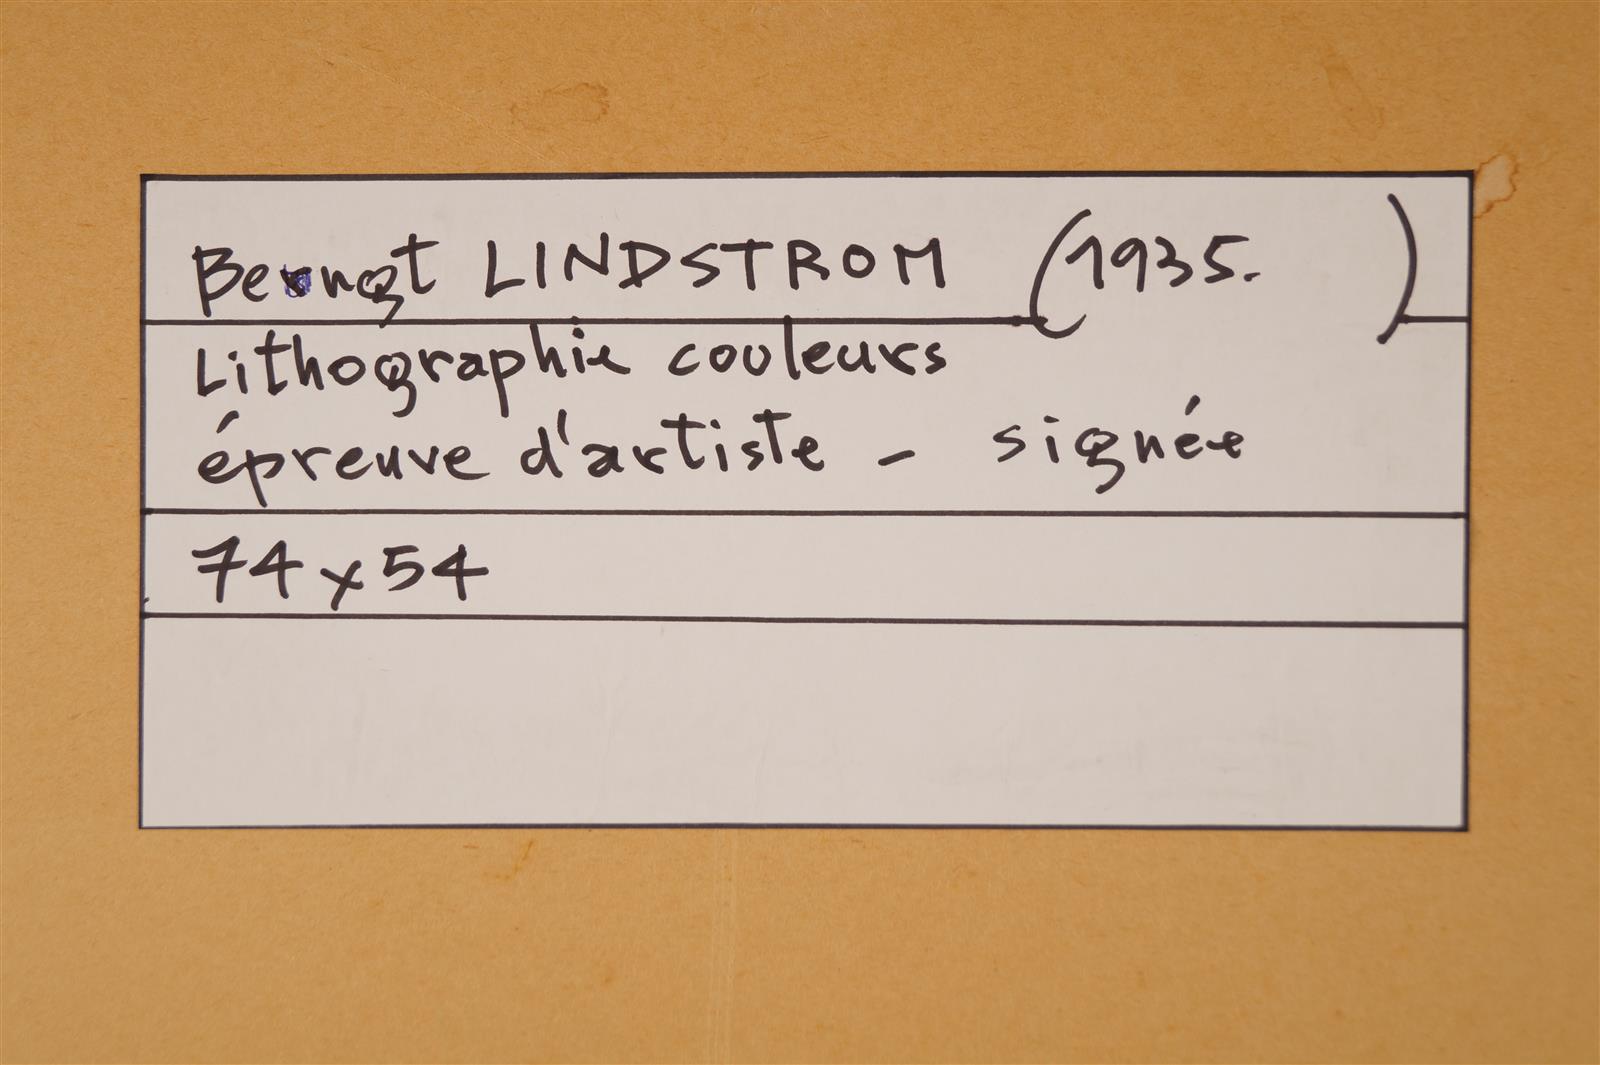 Bengt LINDSTROM (1935. )
Lithographie couleurs
épreuve d'artiste - signée
74x54